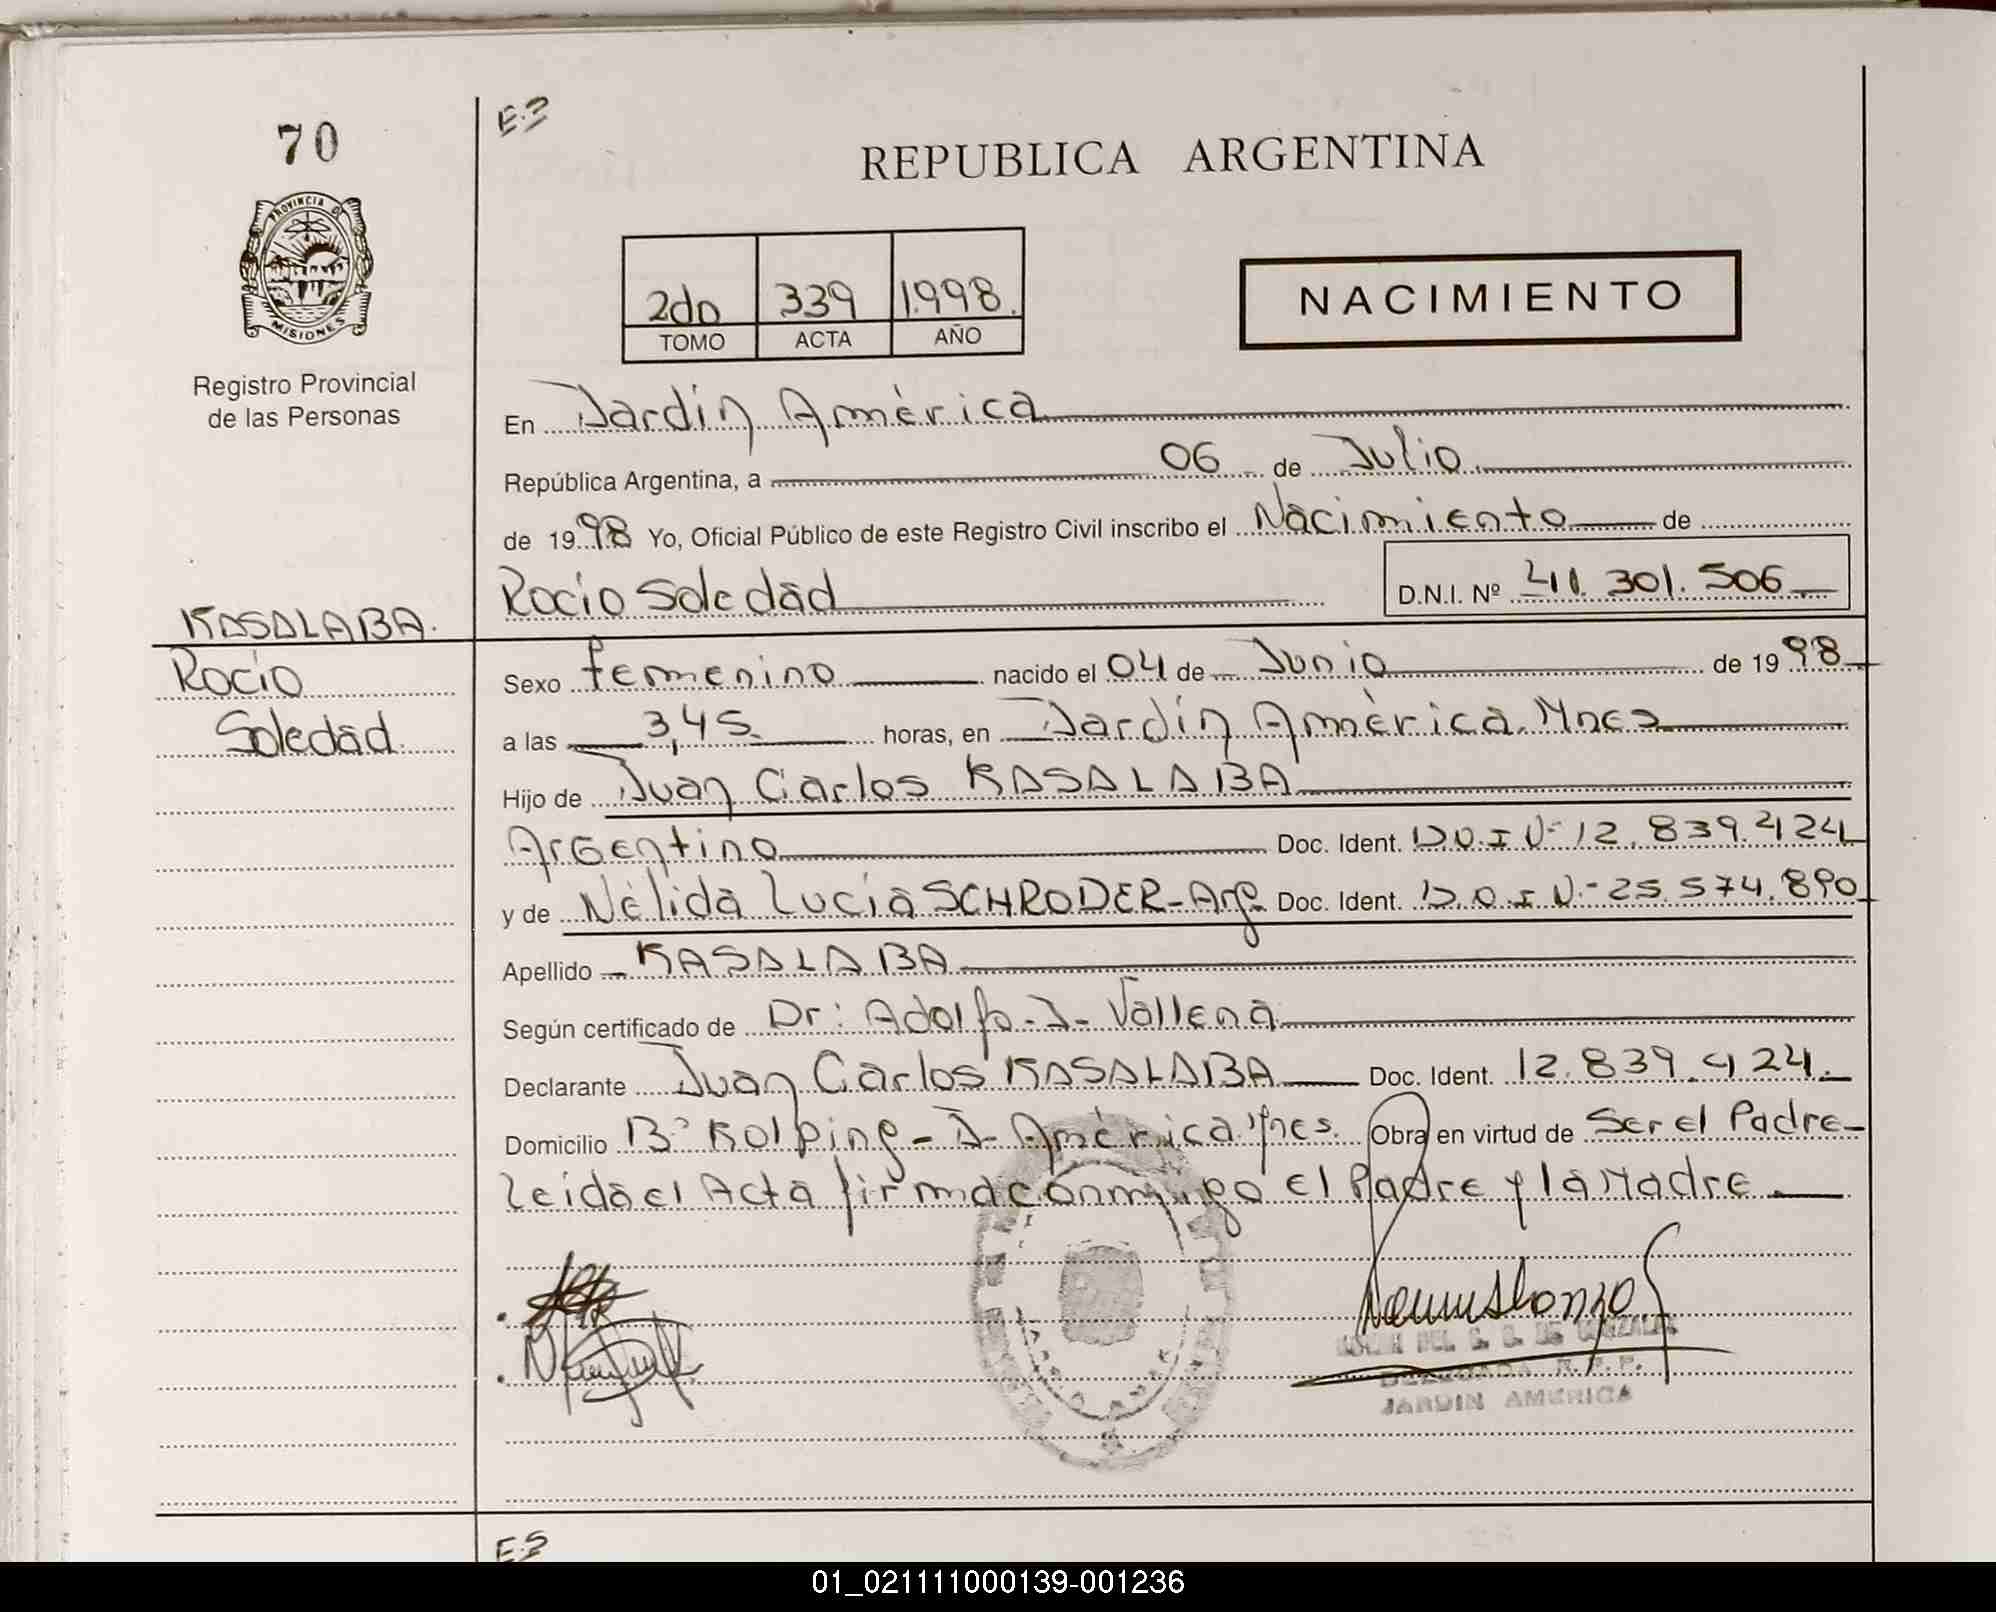 70
E.2
REPUBLICA ARGENTINA
PROVINCIA DE
MISIONES
2do 339 1.998.
TOMO ACTA AÑO
NACIMIENTO
Registro Provincial
de las Personas
En Jardín América
República Argentina, a 06 de Julio
de 1998 Yo, Oficial Público de este Registro Civil inscribo el Nacimiento de
Rocio Soledad D.N.I. Nº 41.301.506
KASALABA.
Rocio
Soledad
Sexo femenino nacido el 04 de Junio de 1998
a las 3,45 horas, en Jardín América. Mnes
Hijo de Juan Carlos KASALABA
Argentino Doc. Ident. D.N.I Nº 12.839.424
y de Nélida Lucia SCHRODER-Arg. Doc. Ident. D.N.I Nº 25.574.890
Apellido KASALABA
Según certificado de Dr: Adolfo-J- Vallena
Declarante Juan Carlos KASALABA Doc. Ident. 12.839.424.
Domicilio Bº Kolping - J- América Mnes. Obra en virtud de Ser el Padre-
Leida el Acta firma conmigo el Padre y la Madre.
DELEGADA R.P.P.
JARDIN AMERICA
01_021111000139-001236